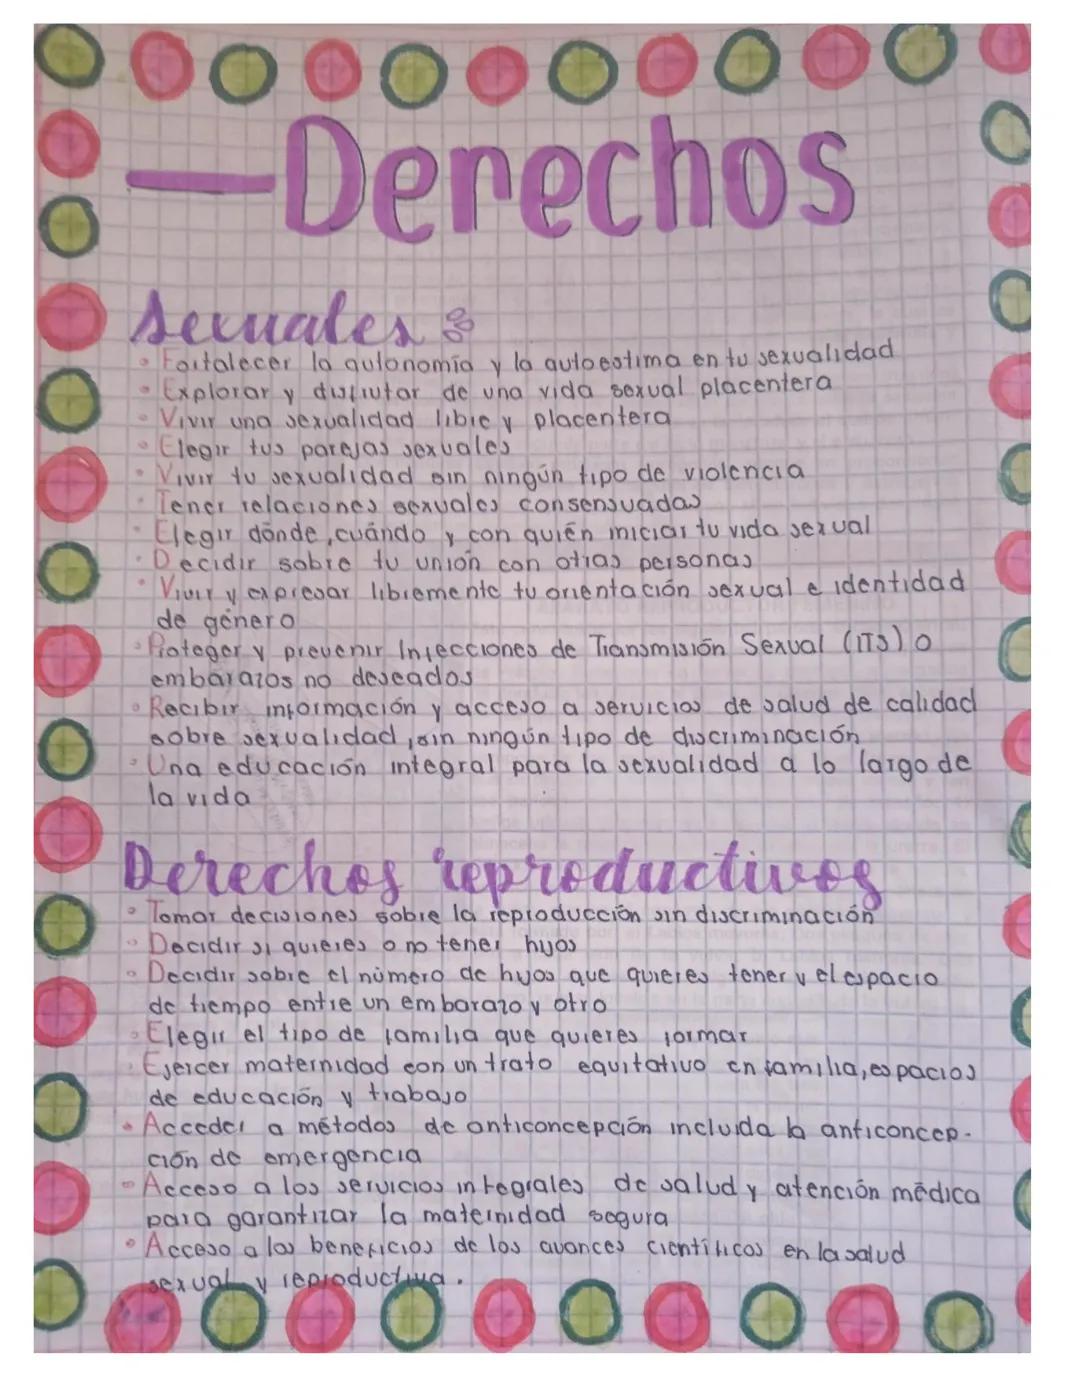 —Derechos
Sexuales:
• Fortalecer la autonomía y la autoestima en tu sexualidad
• Explorar y disfrutar de una vida sexual placentera
• Vivir una sexualidad libre y placentera
• Elegir tus parejas sexuales
• Vivir tu sexualidad sin ningún tipo de violencia
• Tener relaciones sexuales consensuadas
• Elegir dónde, cuándo y con quién iniciar tu vida sexual
• Decidir sobre tu unión con otras personas
• Vivir y expresar libremente tu orientación sexual e identidad
de género
• Proteger y prevenir Infecciones de Transmisión Sexual (ITS) o
embarazos no deseados
• Recibir información y acceso a servicios de salud de calidad
sobre sexualidad, sin ningún tipo de discriminación
• Una educación integral para la sexualidad a lo largo de
la vida
Derechos reproductivos
• Tomar decisiones sobre la reproducción sin discriminación
• Decidir si quieres o no tener hijos
• Decidir sobre el número de hijos que quieres tener y el espacio
de tiempo entre un embarazo y otro
• Elegir el tipo de familia que quieres formar
• Ejercer maternidad con un trato equitativo en familia, espacios
de educación y trabajo
• Acceder a métodos de anticoncepción incluida la anticoncep-
ción de emergencia
• Acceso a los servicios integrales de salud y atención médica
para garantizar la maternidad segura
• Acceso a los beneficios de los avances científicos en la salud
sexual y reproductiva.